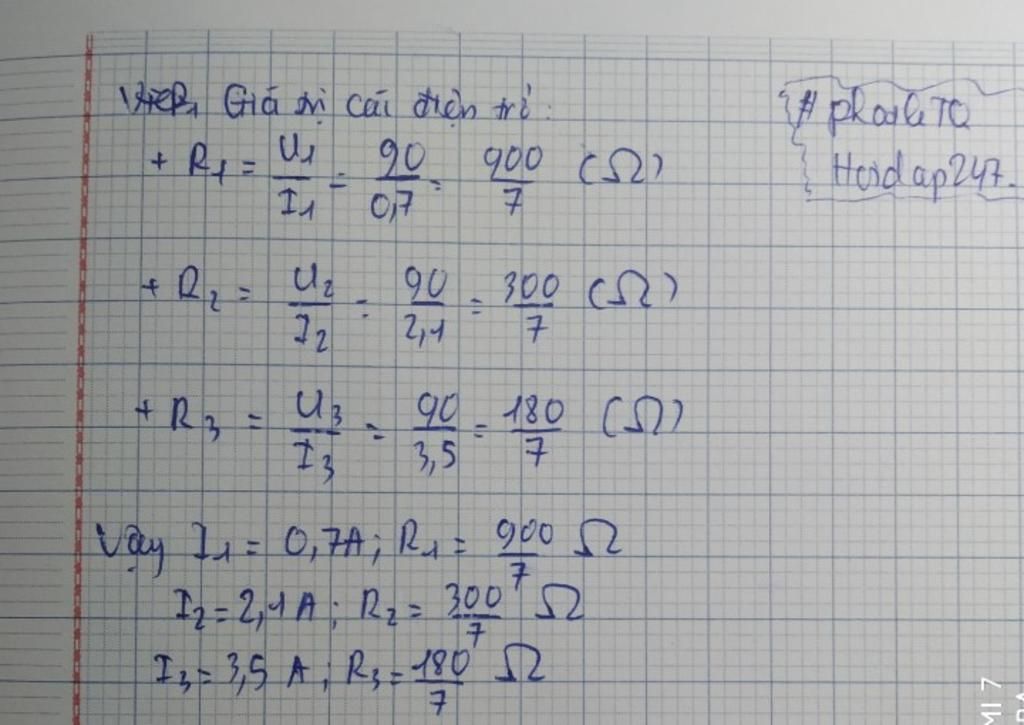 Giá trị các điện trở:
+ R₁ = U₁/I₁ = 90/0,7 = 900/7 (Ω)
+ R₂ = U₂/I₂ = 90/2,1 = 300/7 (Ω)
+ R₃ = U₃/I₃ = 90/3,5 = 180/7 (Ω)
Vậy I₁ = 0,7A; R₁ = 900/7 Ω
I₂ = 2,1A; R₂ = 300/7 Ω
I₃ = 3,5 A; R₃ = 180/7 Ω
Hoidap247.
MI 7